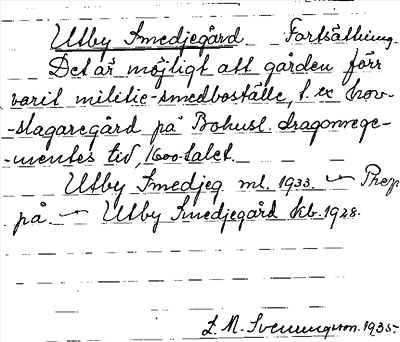 Utby Smedjegård Fortsättning.
Det är möjligt att gården förr
varit militie-smedboställe, t. ex hov-
-slagaregård på Bohusl. dragonrege-
-mentes tid, 1600-talet.
Utby Smedjeg. ml. 1933. ~ Prep
på ~ Utby Smedjegård kb. 1928.
L. M. Svenungsson. 1935.